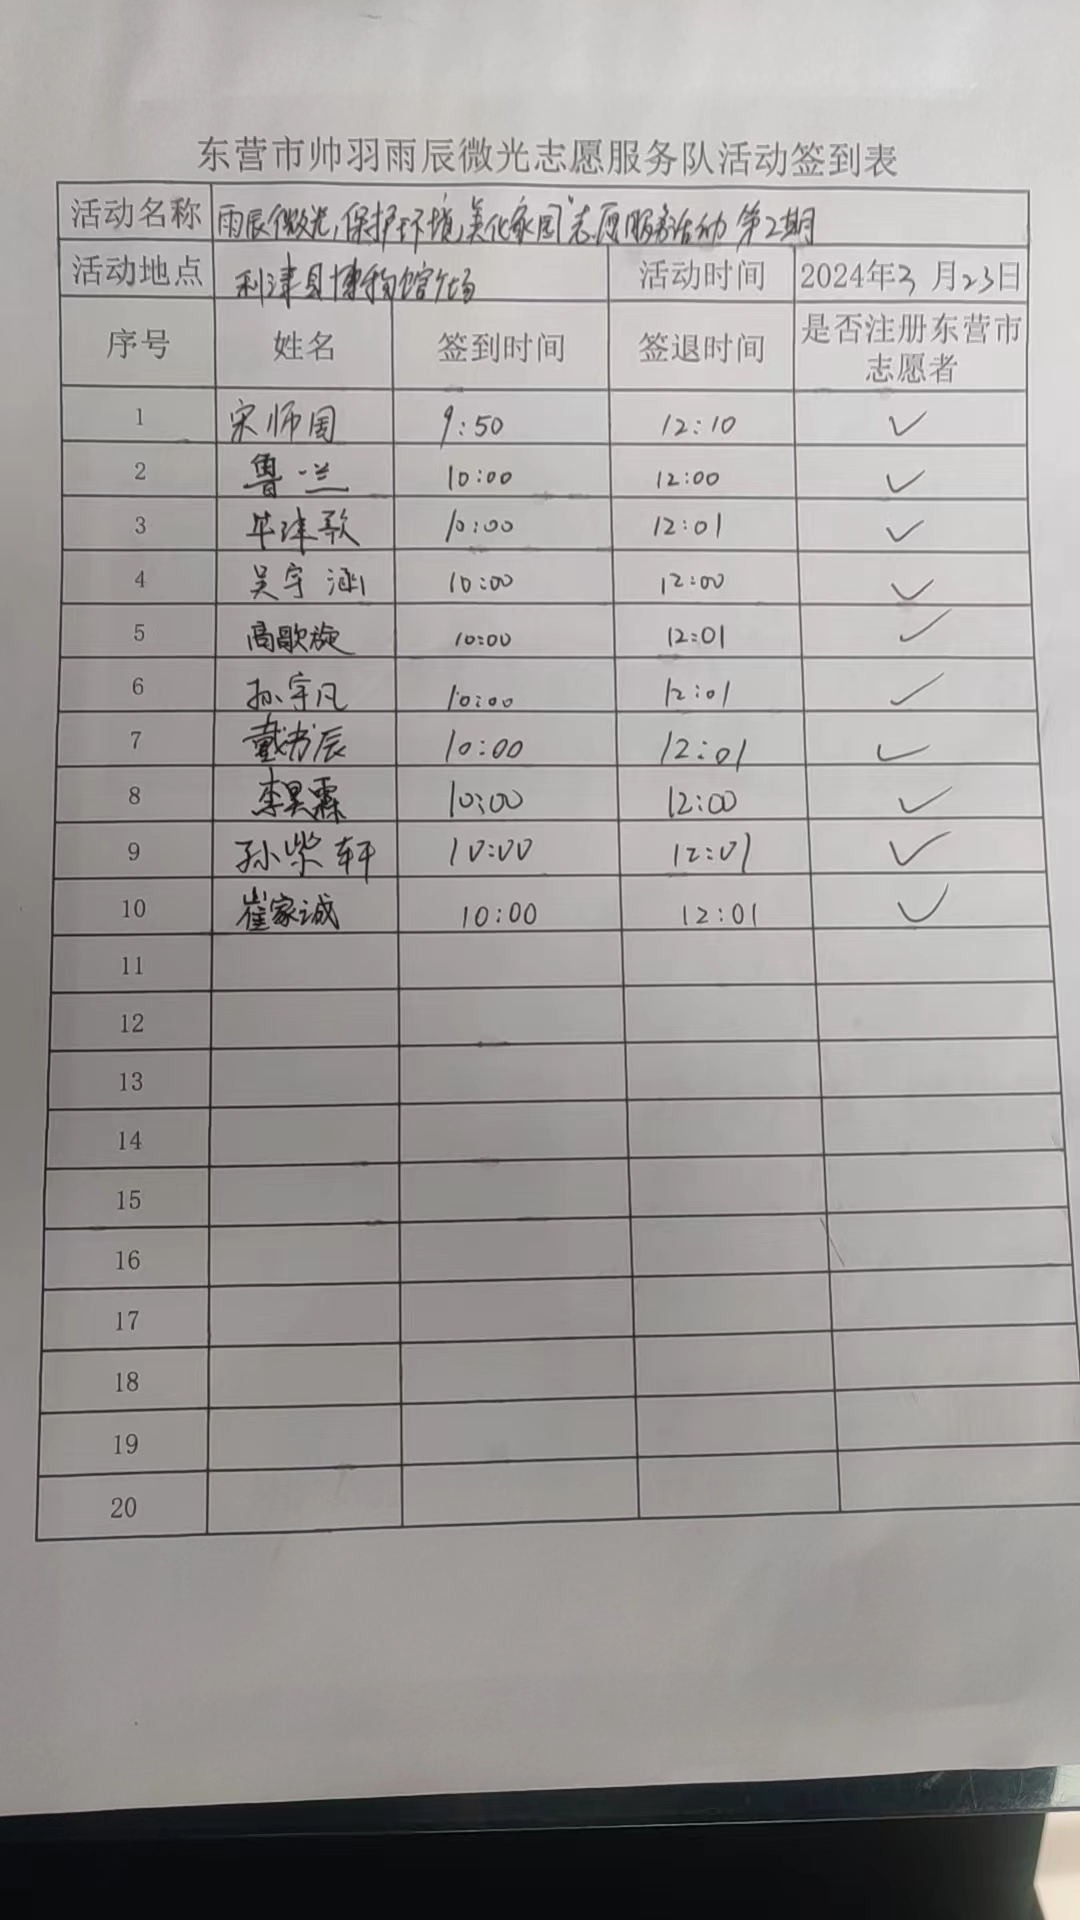 东营市帅羽雨辰微光志愿服务队活动签到表
活动名称 雨辰微光,保护环境,美化家园"志愿服务活动 第2期
活动地点 利津县博物馆广场 活动时间 2024年3月23日
序号 姓名 签到时间 签退时间 是否注册东营市志愿者
1 宋师国 9:50 12:10 ✓
2 鲁兰 10:00 12:00 ✓
3 牛津歌 10:00 12:01 ✓
4 吴宇涵 10:00 12:00 ✓
5 高歌旋 10:00 12:01 ✓
6 孙宇凡 10:00 12:01 ✓
7 戴书辰 10:00 12:01 ✓
8 李昊霖 10:00 12:00 ✓
9 孙柴轩 10:00 12:01 ✓
10 崔家诚 10:00 12:01 ✓
11
12
13
14
15
16
17
18
19
20